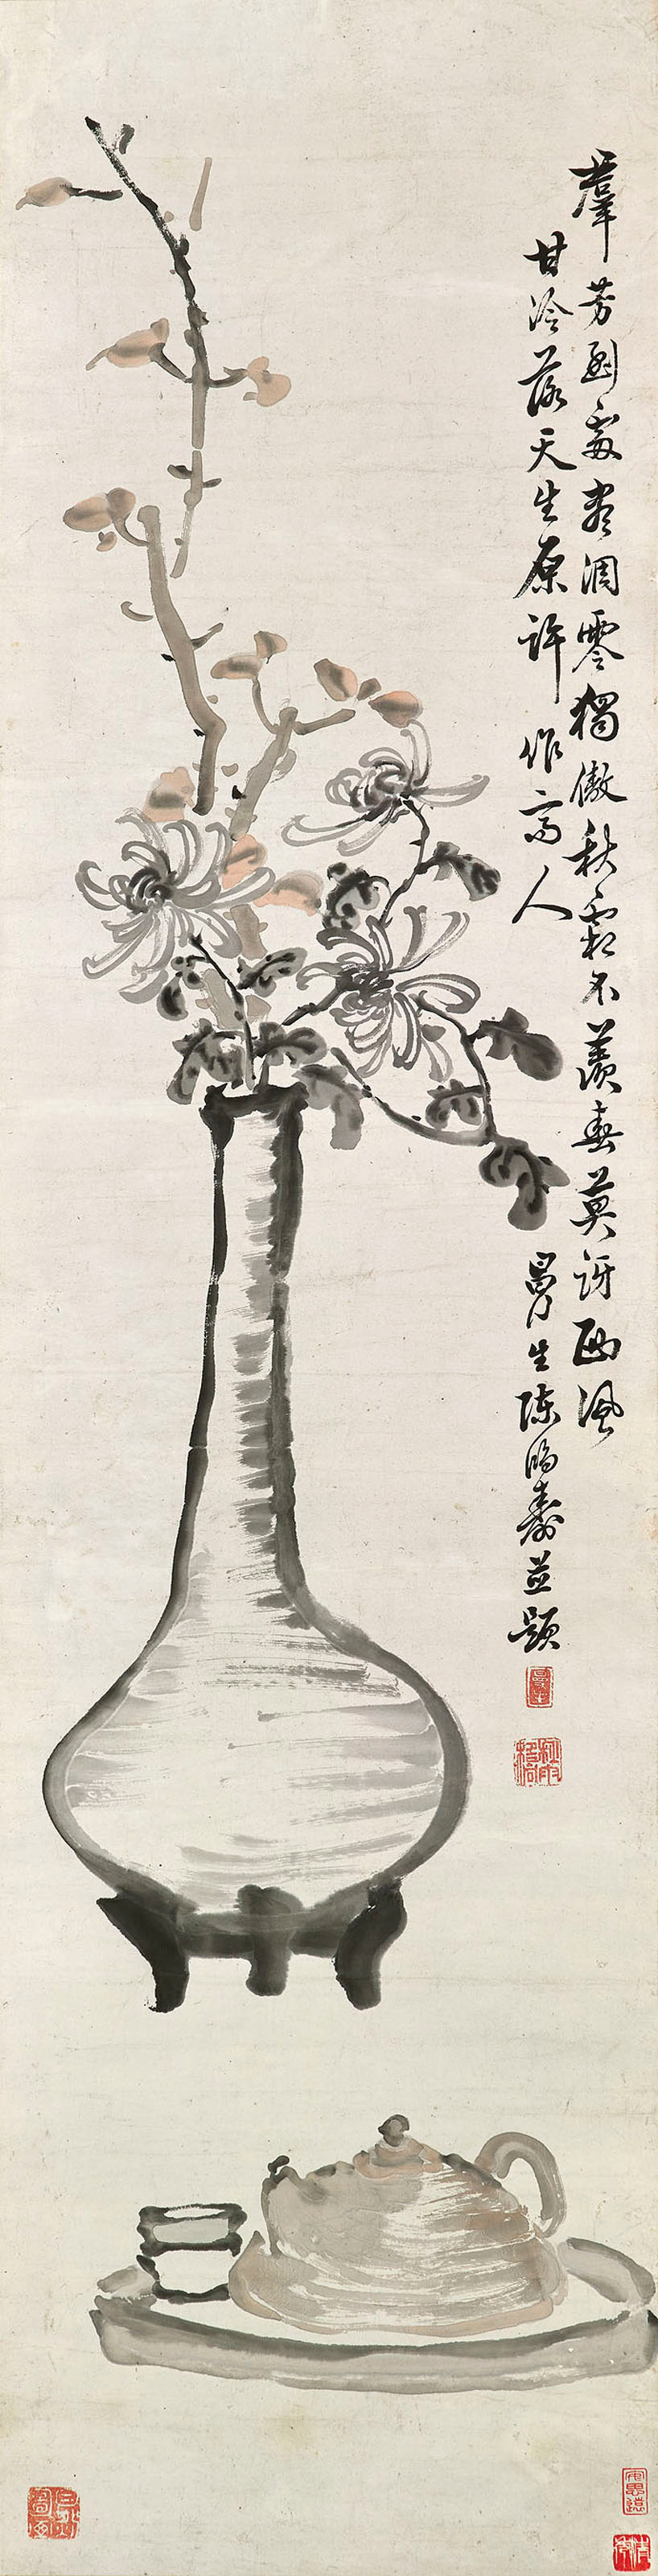 羣芳到處凋零獨傲秋霜不羨春莫訝西風
甘冷落天生原許作高人
曼生陳鴻壽並題
安思遠